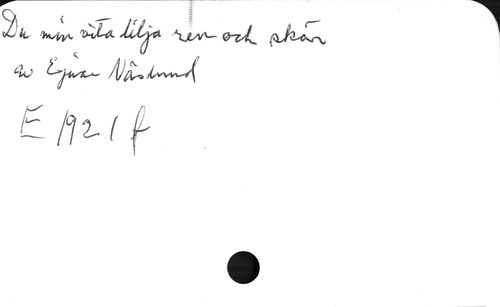 Du min vita lilja ren och skär
av Ejnar Näslund
E 1921 f